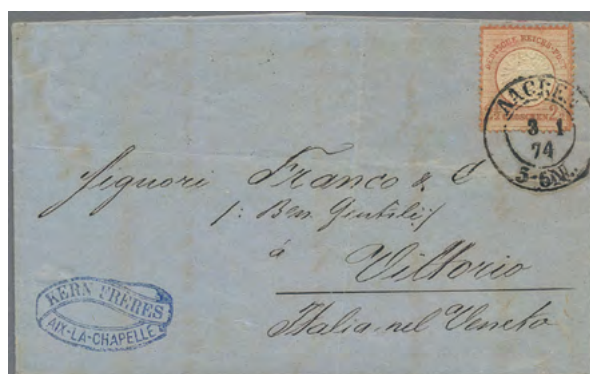 DEUTSCHE REICHS-POST
AACHEN
3 1
74
5-6N.
Signori Franco & C
/: Ben. Gentili :/
à
Vittorio
Italia nel Veneto
KERN FRERES
AIX-LA-CHAPELLE